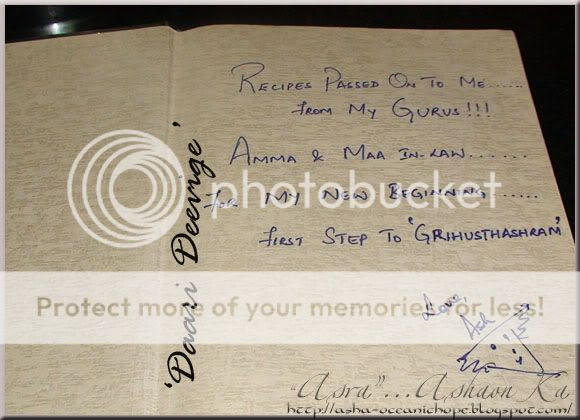 RECIPES PASSED ON TO ME......
FROM MY GURUS!!!
AMMA & MAA IN-LAW.......
FOR MY NEW BEGINNING......
FIRST STEP TO "GRIHUSTHASHRAM"
Love,
Ash
'Daani Deevige'
photobucket
Protect more of your memories for less!
"Asra"...Ashaon Ka
http://asha-oceanichope.blogspot.com/